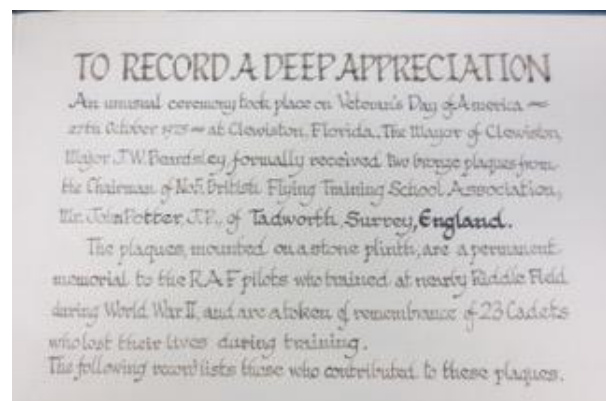 TO RECORD A DEEP APPRECIATION
An unusual ceremony took place on Veteran's Day of America ~
27th October 1975 ~ at Clewiston, Florida. The Mayor of Clewiston,
Major J.W. Beardsley, formally received two bronze plaques from
the Chairman of No.5 British Flying Training School Association,
Mr. John Potter, J.P., of Tadworth, Surrey, England.
The plaques, mounted on a stone plinth, are a permanent
memorial to the R.A.F pilots who trained at nearby Riddle Field
during World War II, and are a token of remembrance of 23 Cadets
who lost their lives during training.
The following record lists those who contributed to these plaques.